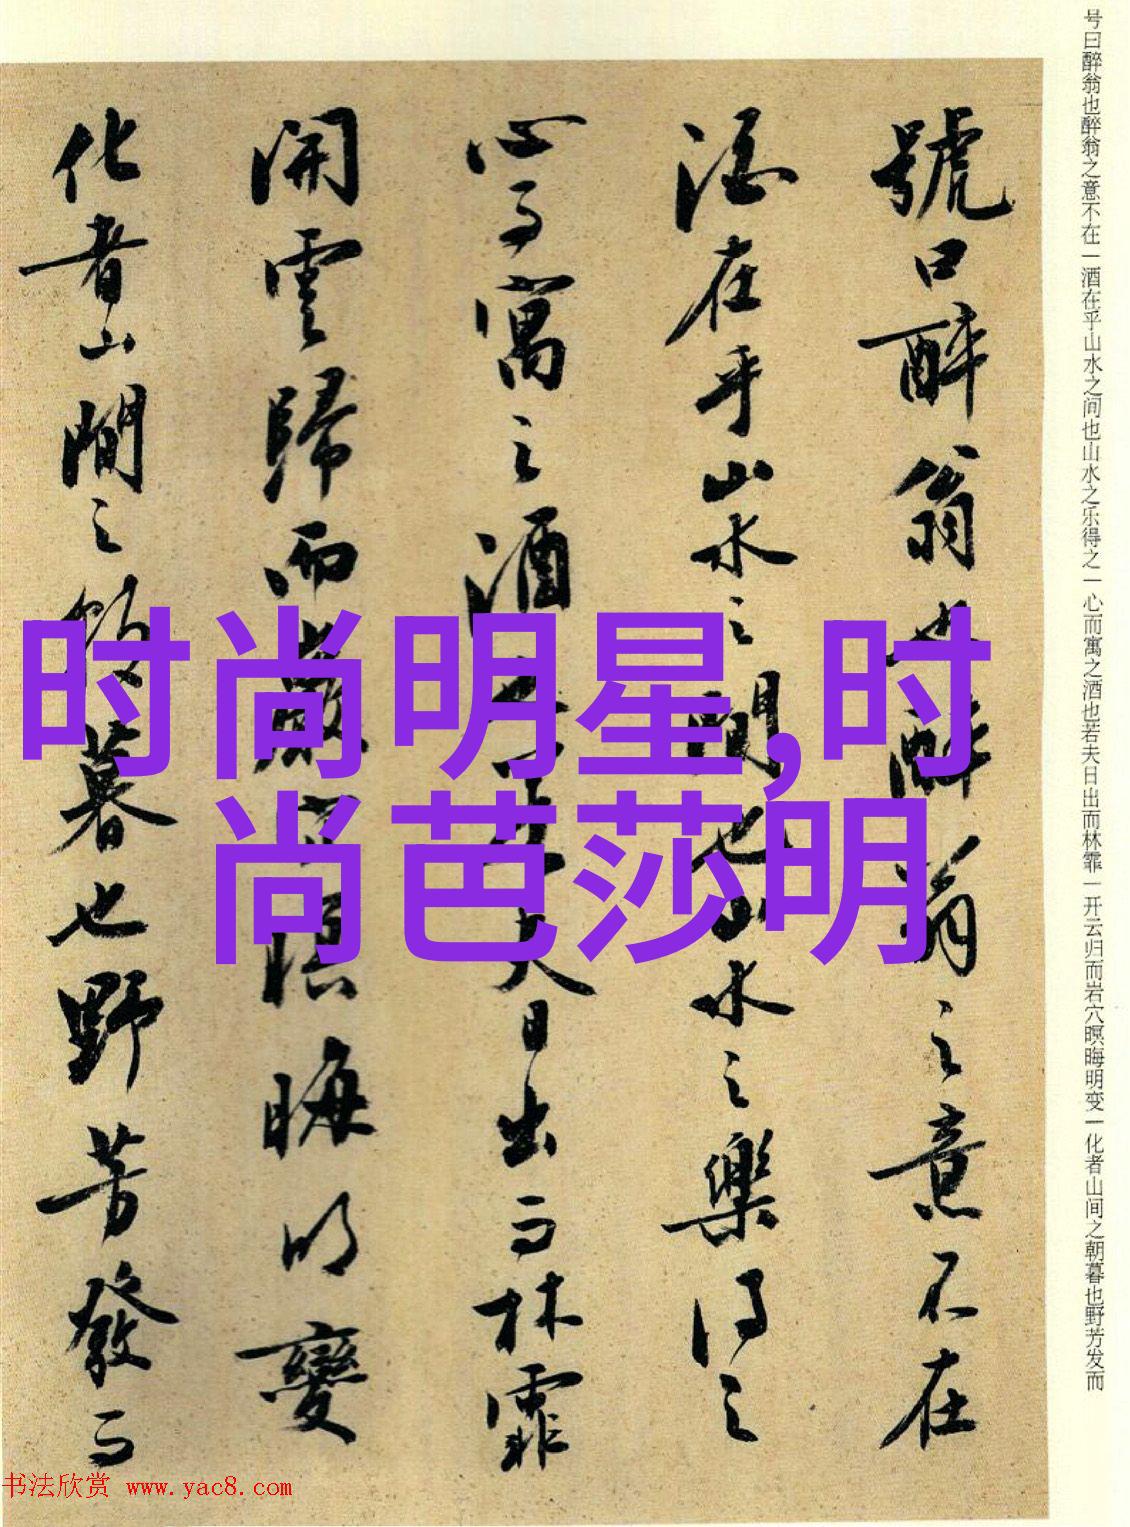 号曰醉翁也醉翁之意不在一酒在乎山水之间也山水之乐得之一心而寓之酒也若夫日出而林霏一开云归而岩穴暝晦明变一化者山间之朝暮也野芳发而
號曰醉翁也醉翁之意不在
酒在乎山水之間也山水之樂得之
心而寓之酒也若夫日出而林霏
開雲歸而巖穴暝晦明變
化者山間之朝暮也野芳發而
时尚明星,时
尚芭莎明
书法欣赏 www.yac8.com